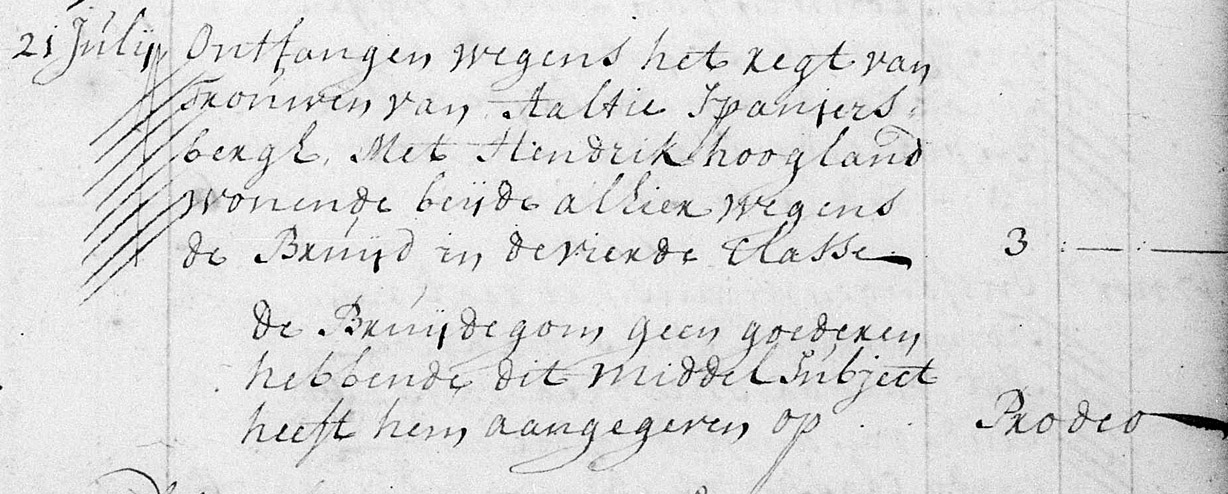 21 Julij Ontfangen wegens het regt van
Trouwen van Aaltie Spaniers-
bergh. Met Hendrik hoogland
wonende beijde alhier wegens
de Bruijd in de vierde Classe 3 : — : —
de Bruijdegom geen goederen
hebbende dit middel Subject
heeft hem aangegeven op Prodeo